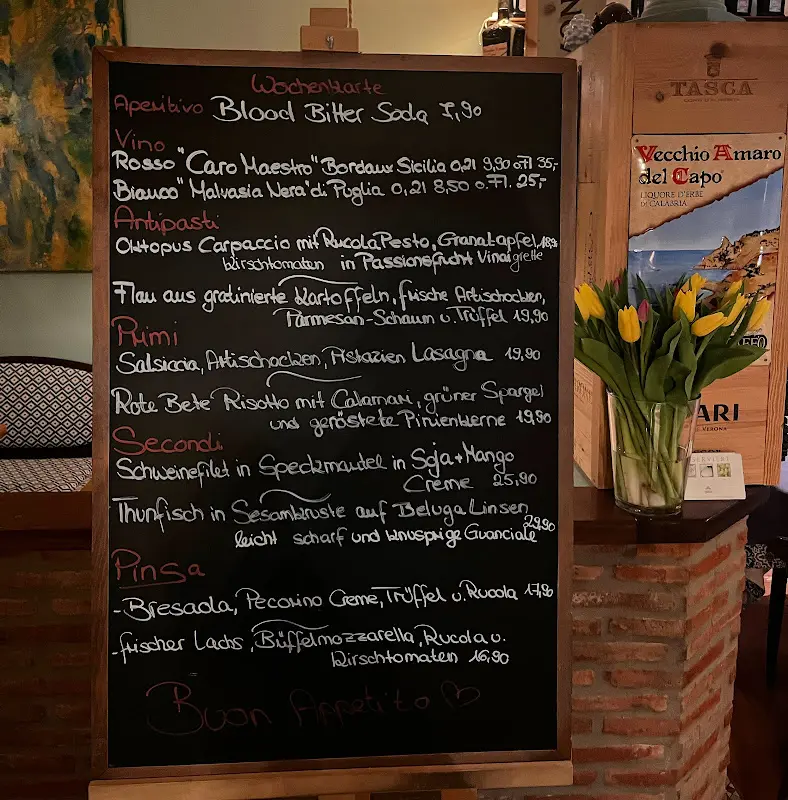 Wochenkarte
Aperitivo Blood Bitter Soda 7,90
Vino
Rosso "Caro Maestro" Bordaux Sicilia 0,2l 9,90 o.Fl 35,-
Bianco "Malvasia Nera" di Puglia 0,2l 8,50 o.Fl. 25,-
Antipasti
Oktopus Carpaccio mit Rucola Pesto, Granatapfel, 18,90
Kirschtomaten in Passionsfrucht Vinaigrette
Flan aus gratinierte Kartoffeln, frische Artischocken,
Parmesan-Schaum u. Trüffel 19,90
Primi
Salsiccia, Artischocken, Pistazien Lasagna 19,90
Rote Bete Risotto mit Calamari, grüner Spargel
und geröstete Pinienkerne 19,90
Secondi
Schweinefilet in Speckmantel in Soja + Mango
Creme 25,90
Thunfisch in Sesamkruste auf Beluga Linsen
29,90
leicht scharf und knusprige Guanciale
Pinsa
- Bresaola, Pecorino Creme, Trüffel u. Rucola 17,90
- frischer Lachs, Büffelmozzarella, Rucola u.
Kirschtomaten 16,90
Buon Appetito
TASCA
Vecchio Amaro
del Capo
LIQUORE D'ERBE
DI CALABRIA
ARI
VERONA